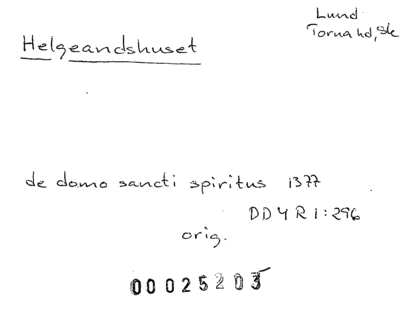 Helgeandshuset
Lund
Torna hd, Sk
de domo sancti spiritus 1377
DD 4 R 1:296
orig.
00025203